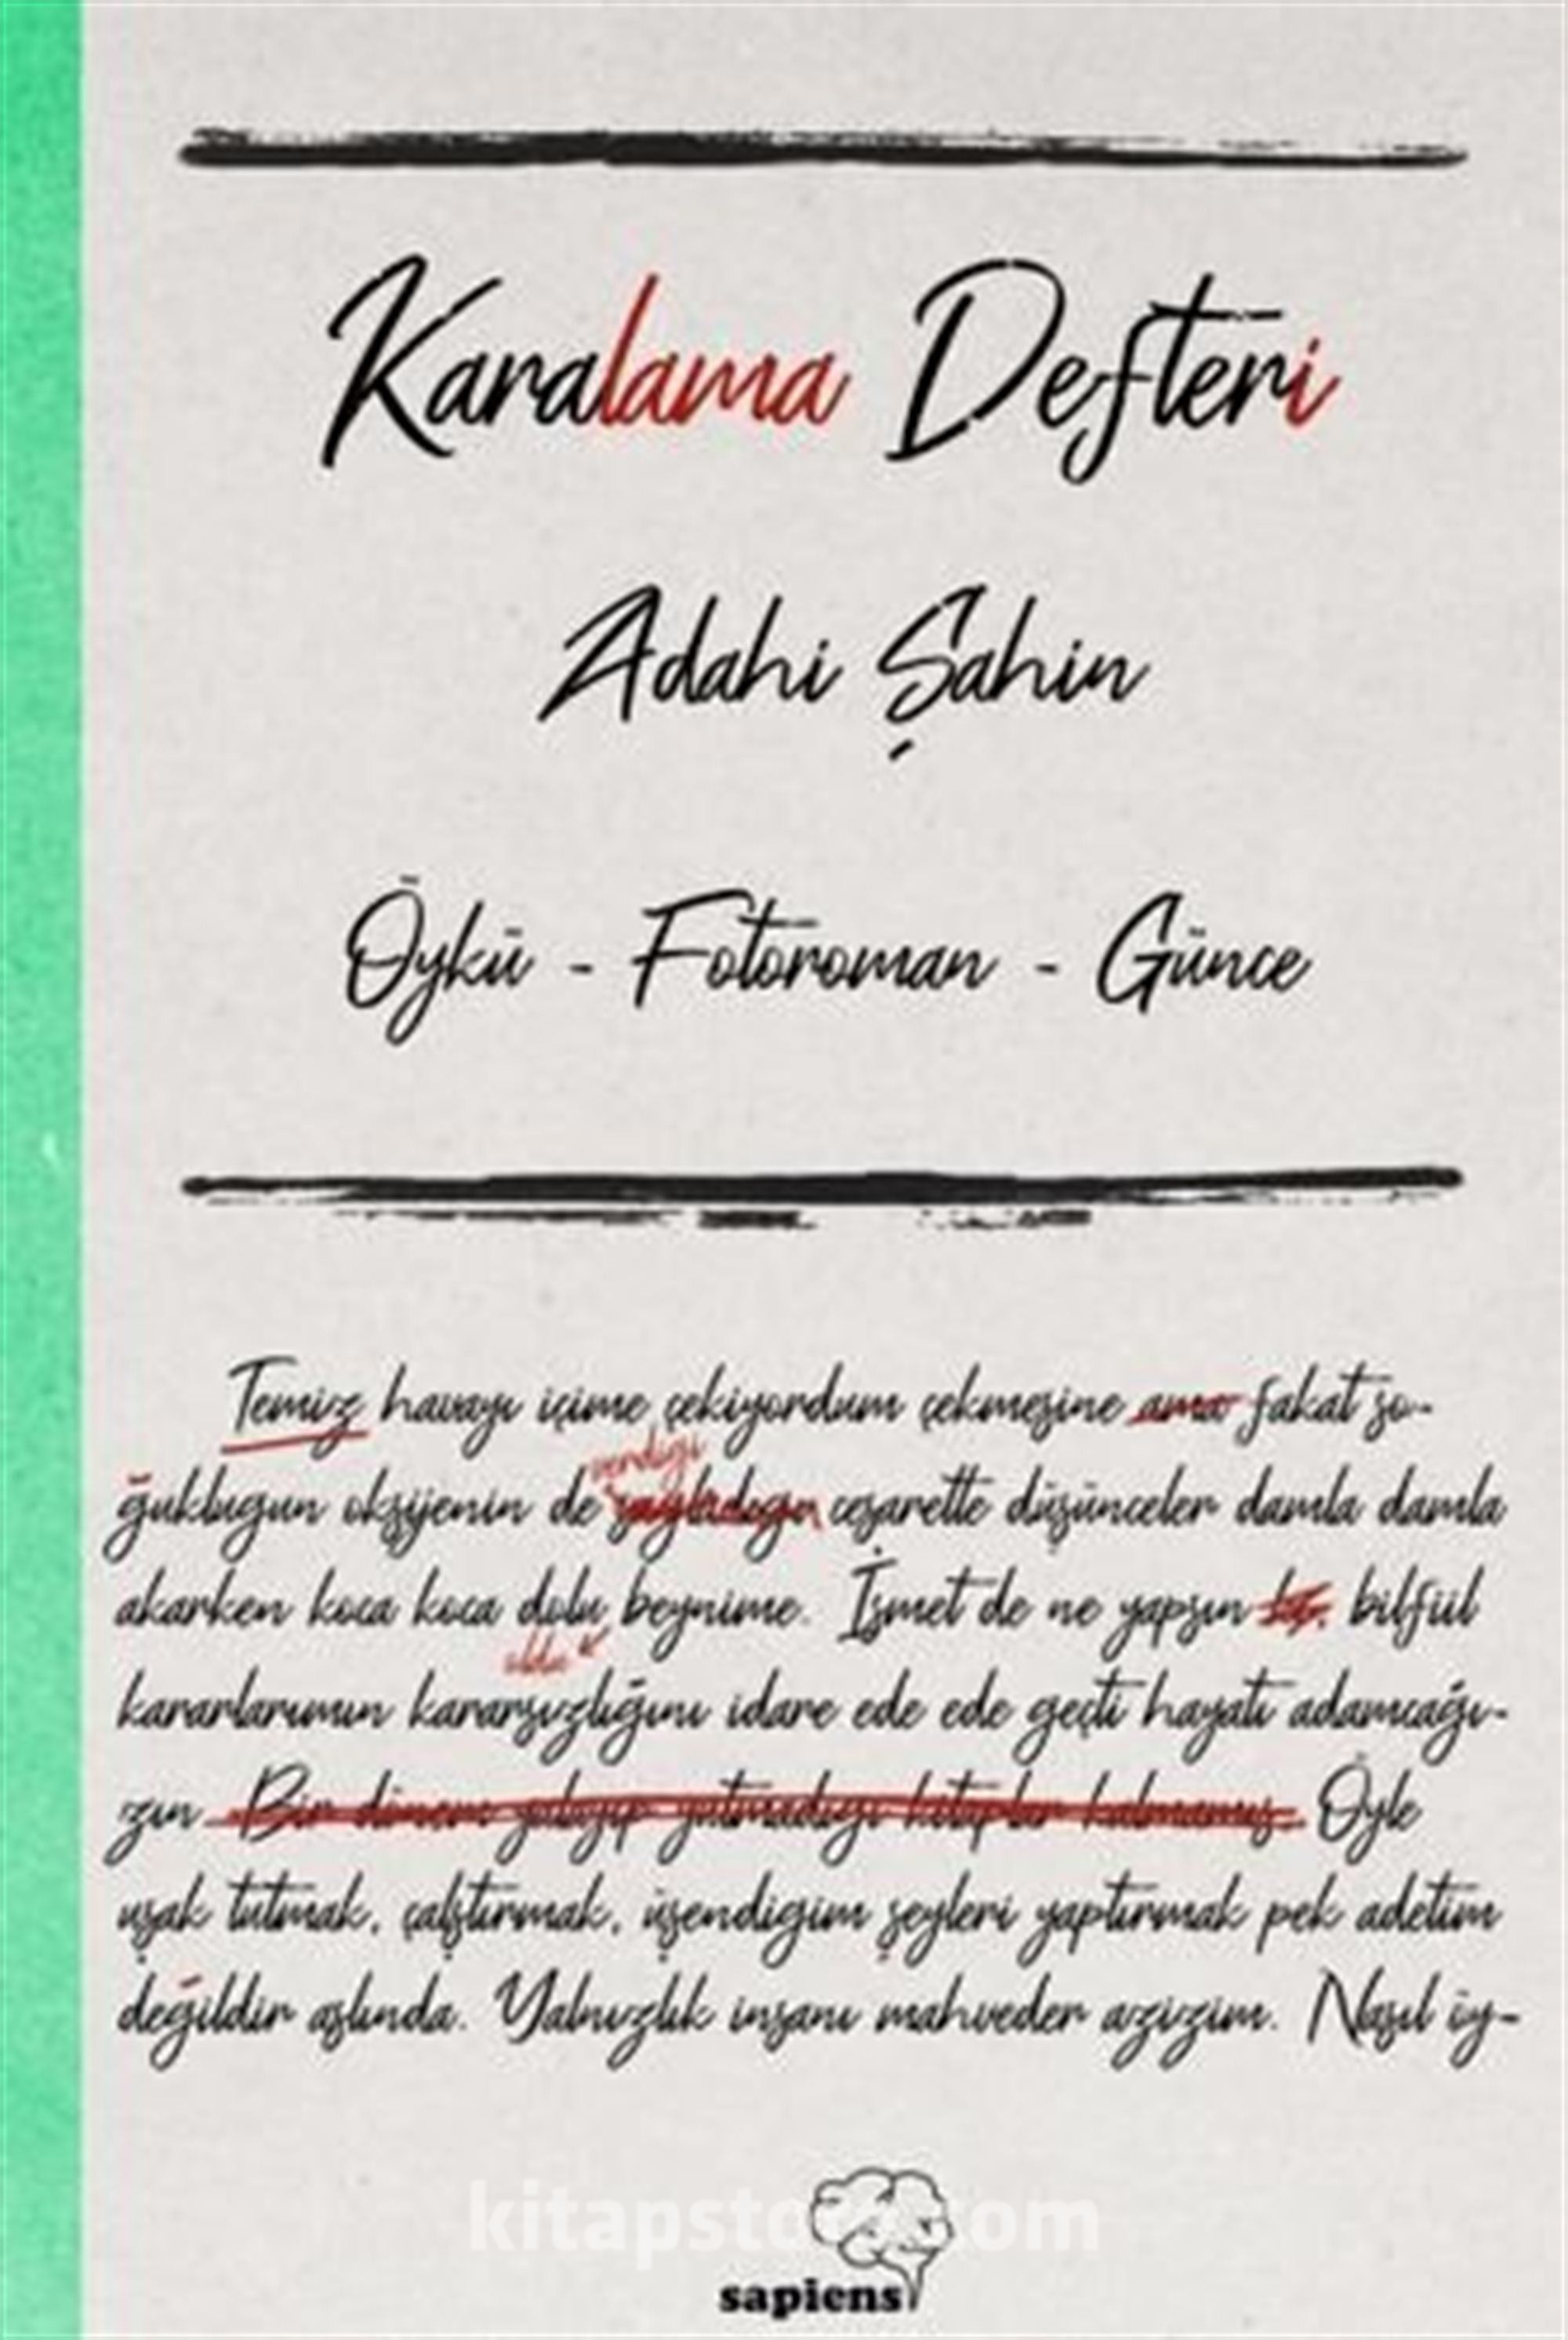 Karalama Defteri
Adahi Şahin
Öykü - Fotoroman - Günce
Temiz havayı içime çekiyordum çekmesine ama fakat so-
verdiği
ğuklugun oksijenin de sagladıgın cesaretle düşünceler damla damla
akarken koca koca dolu beynime. İsmet de ne yapsın bilfiil
oldu
kararlarımın kararsızlığını idare ede ede geçti hayatı adamcağı-
zın Bir dönem yalayıp yutmadıgı kitaplar kalmamış. Öyle
uşak tutmak, çalştırmak, üşendigim şeyleri yaptırmak pek adetim
değildir aslında. Yalnızlık insanı mahveder azizim. Nasıl öy-
kitapsto om
sapiens